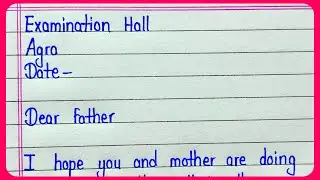 Examination Hall
Agra
Date-
Dear Father
I hope you and mother are doing